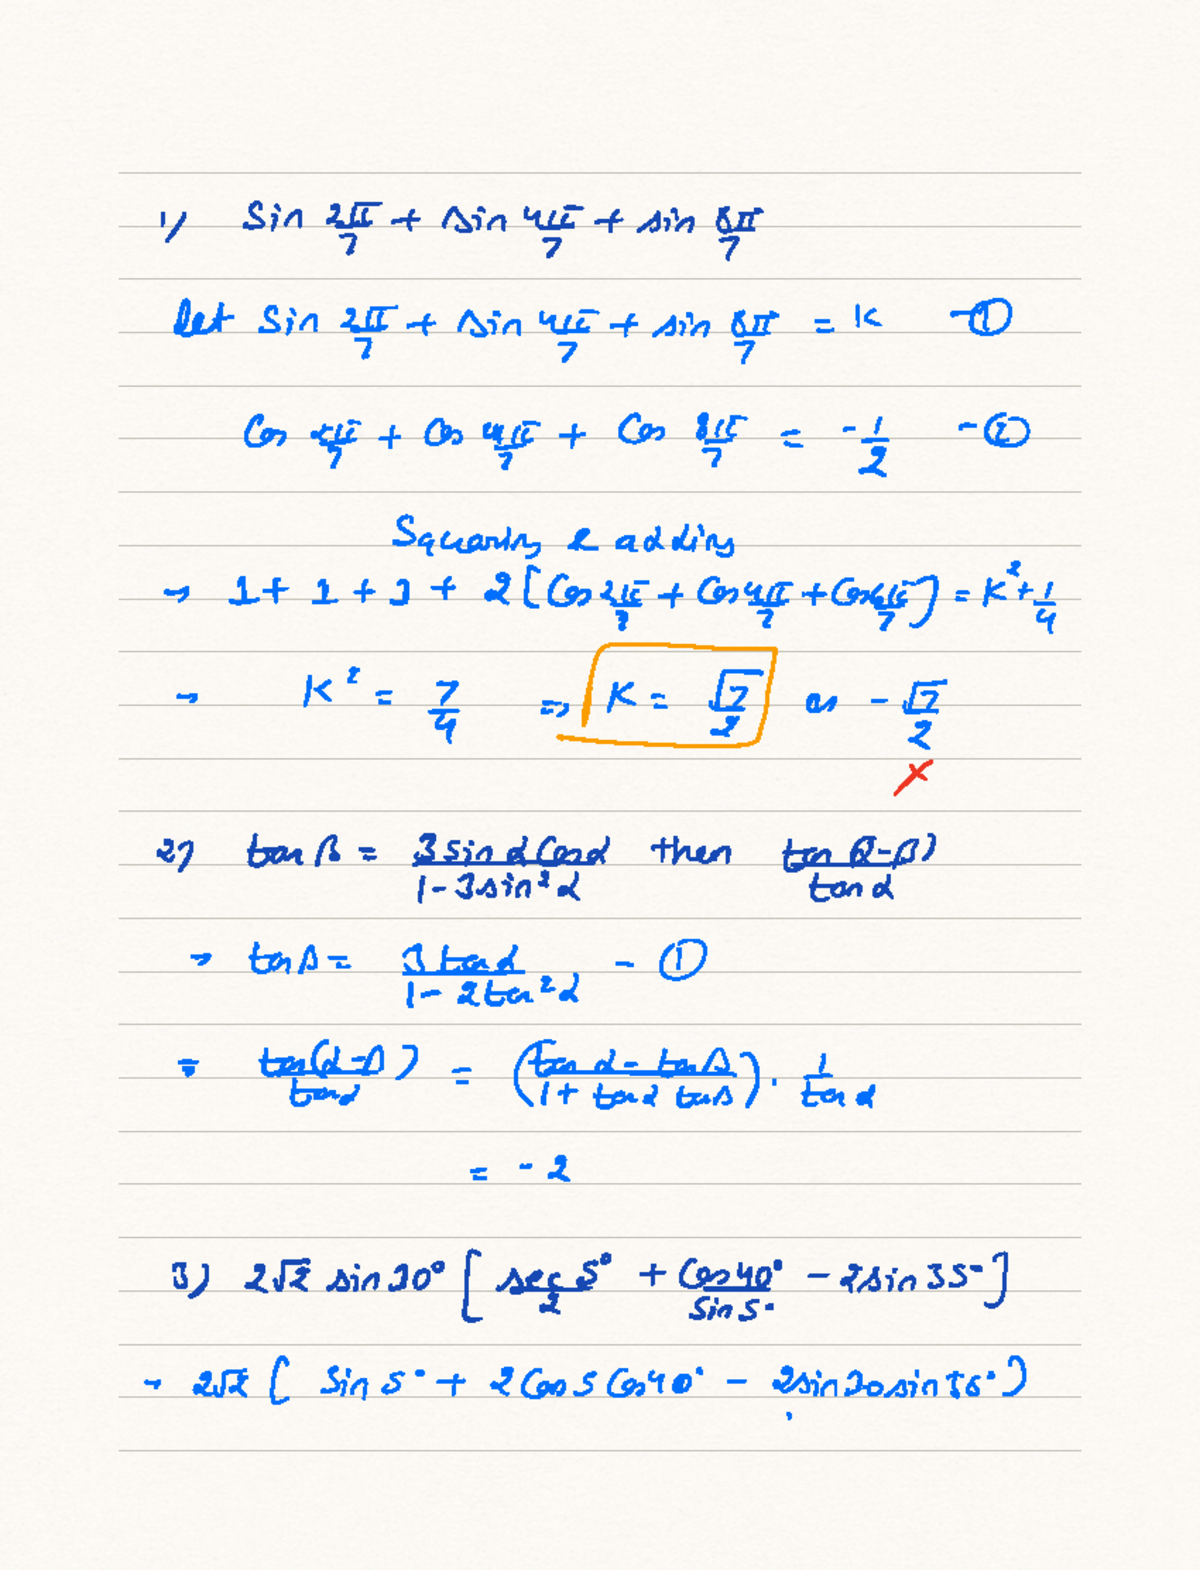 1) Sin 2π/7 + sin 4π/7 + sin 8π/7
let Sin 2π/7 + sin 4π/7 + sin 8π/7 = K - ①
Cos 2π/7 + Cos 4π/7 + Cos 8π/7 = -1/2 - ②
Squaring & adding
→ 1 + 1 + 1 + 2 [Cos 2π/7 + Cos 4π/7 + Cos 6π/7] = K² + 1/4
→ K² = 7/4 ⇒ K = √7/2 or - √7/2
×
2) tan β = 3 sin α Cos α / 1 - 3 sin² α then tan (α - β) / tan α
→ tan β = 3 tan α / 1 - 2 tan² α - ①
= tan (α - β) / tan α = (tan α - tan β / 1 + tan α tan β) · 1 / tan α
= - 2
3) 2√2 sin 10° [ sec 5° / 2 + Cos 40° / Sin 5° - 2 sin 35° ]
→ 2√2 [ Sin 5° + 2 Cos 5 Cos 40° - 2 sin 10 sin 35° )